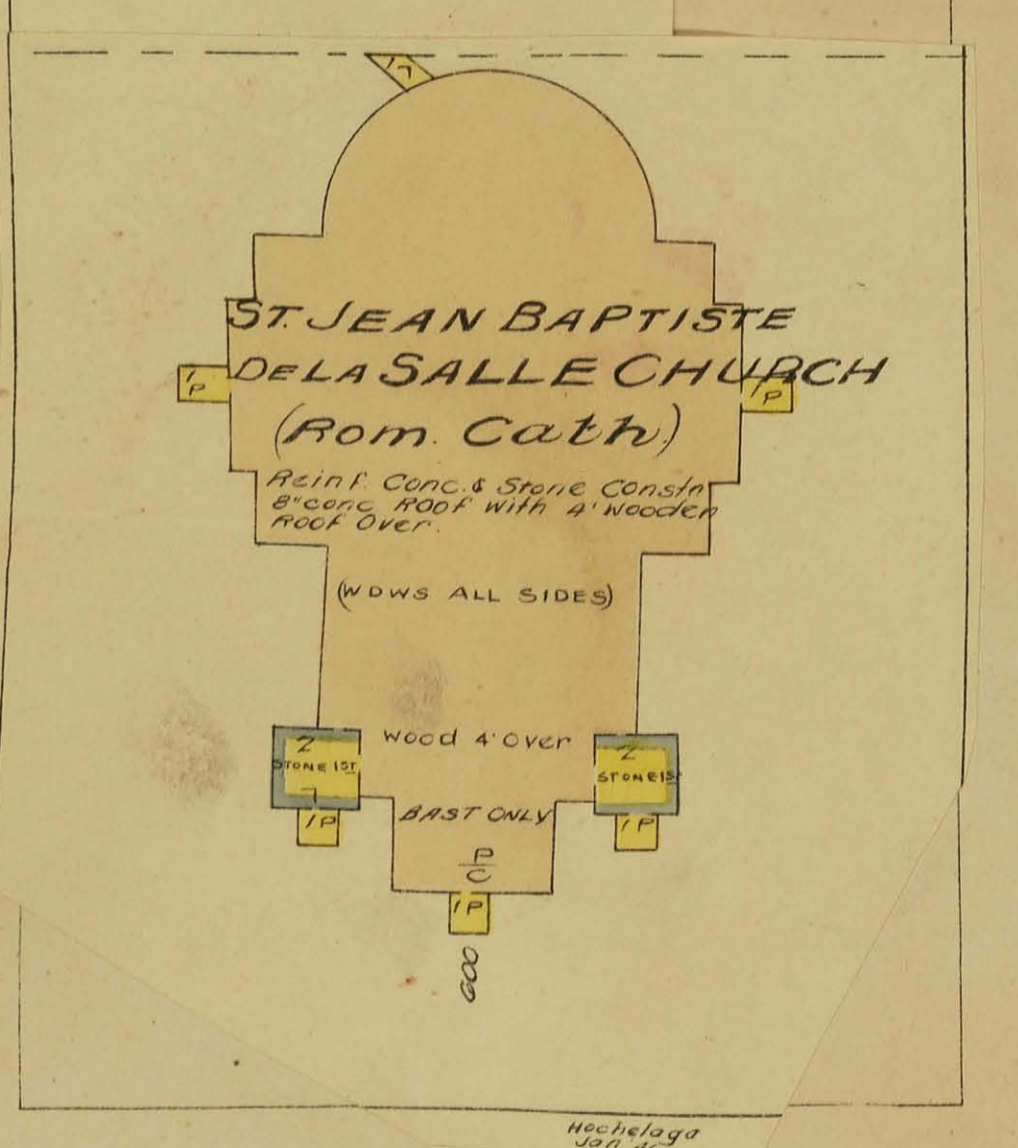 1
ST. JEAN BAPTISTE
DE LA SALLE CHURCH
1P
1P
(Rom. Cath.)
Reinf. Conc. & Stone Constn
8" conc Roof with 4' Wooden
Roof Over.
(WDWS ALL SIDES)
Wood 4' Over
2
STONE 1ST
2
STONE 1ST
BAST ONLY
1P
1P
P
C
1P
600
Hochelaga
Jan